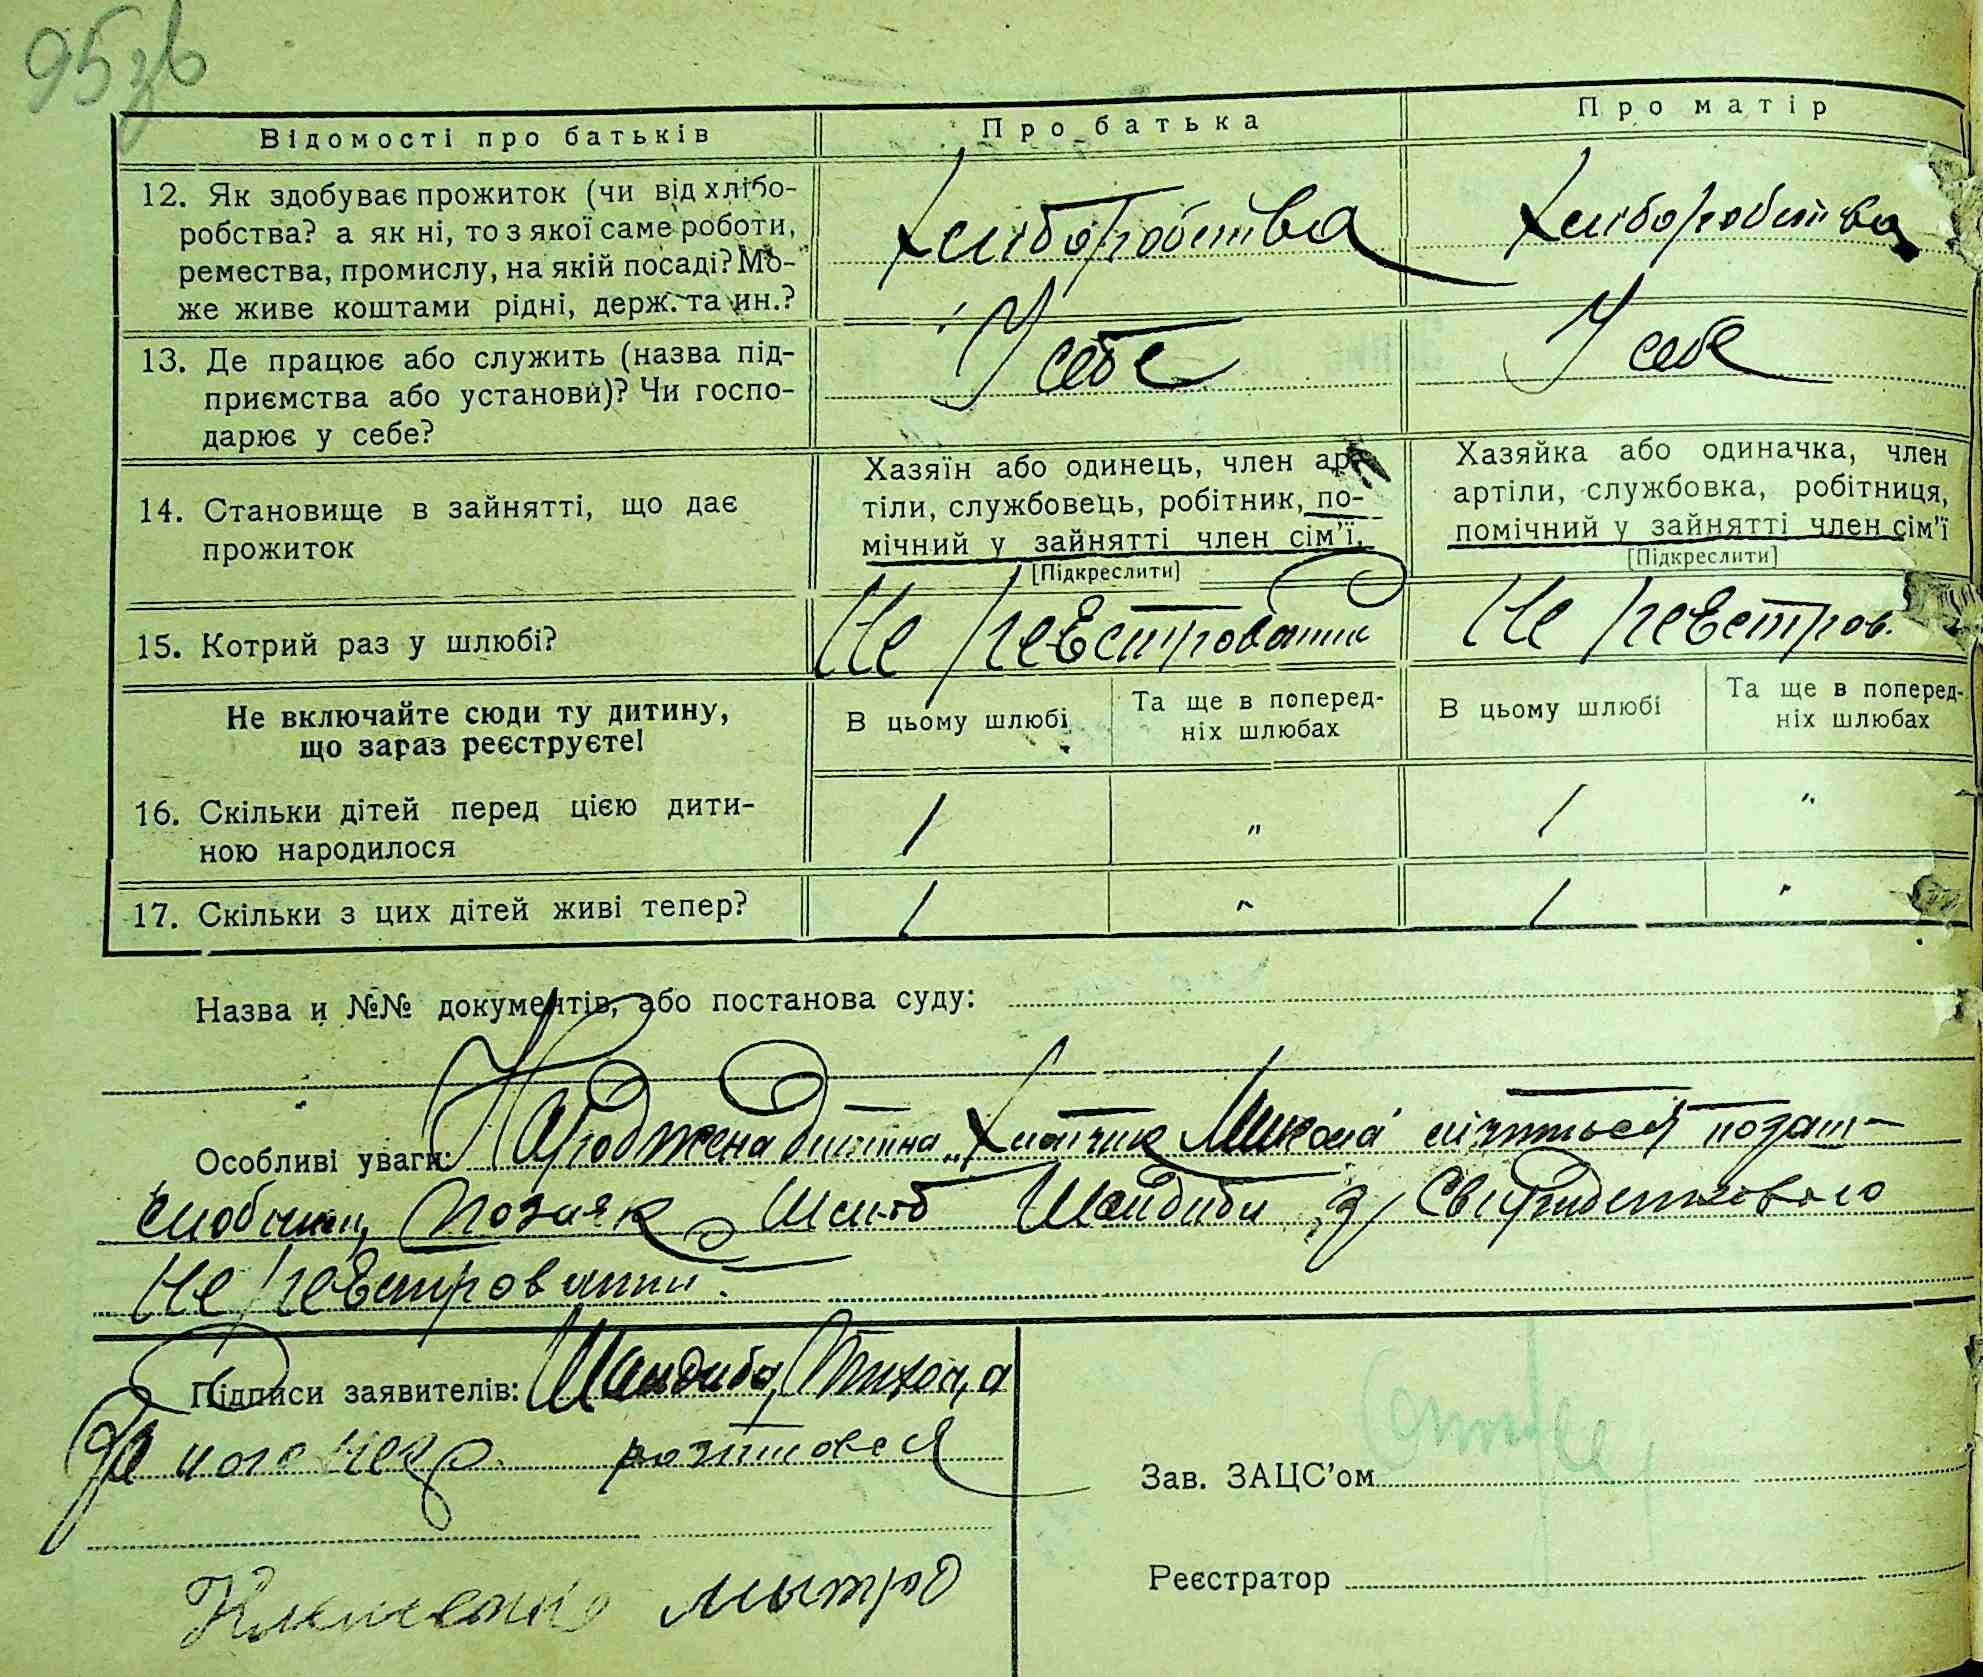 95 зв
Відомості про батьків
Про батька
Про матір
12. Як здобуває прожиток (чи від хлібо-
робства? а як ні, то з якої саме роботи,
ремества, промислу, на якій посаді? Мо-
же живе коштами рідні, держ. та ин.?
Хліборобства
Хліборобства
13. Де працює або служить (назва під-
приємства або установи)? Чи госпо-
дарює у себе?
У себе
У себе
14. Становище в зайнятті, що дає
прожиток
Хазяїн або одинець, член ар-
тіли, службовець, робітник, по-
мічний у зайнятті член сім'ї.
[Підкреслити]
Хазяйка або одиначка, член
артіли, службовка, робітниця,
помічний у зайнятті член сім'ї
[Підкреслити]
15. Котрий раз у шлюбі?
Не реєстрований
Не реєстров.
Не включайте сюди ту дитину,
що зараз реєструєте!
В цьому шлюбі
Та ще в поперед-
ніх шлюбах
В цьому шлюбі
Та ще в поперед-
ніх шлюбах
16. Скільки дітей перед цією дити-
ною народилося
1 " 1 "
17. Скільки з цих дітей живі тепер?
1 " 1 "
Назва и №№ документів, або постанова суду:
Особливі уваги: Народжена дитина „Хлопчик Микола" лічиться позаш-
слюбним, позаяк шлюб Шандиби з
Не реєстрований.
Підписи заявителів: Шандиба Тихон, а
за його незр. розписався
Зав. ЗАЦС'ом
Реєстратор